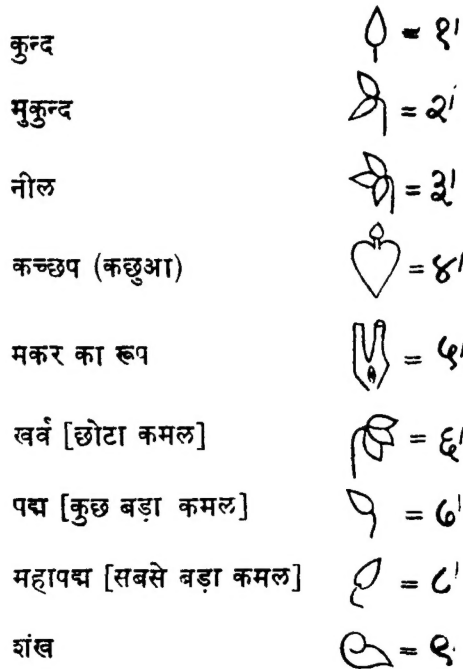 कुन्द = १'
मुकुन्द = २'
नील = ३'
कच्छप (कछुआ) = ४'
मकर का रूप = ५'
खर्व [छोटा कमल] = ६'
पद्म [कुछ बड़ा कमल] = ७'
महापद्म [सबसे बड़ा कमल] = ८'
शंख = ९